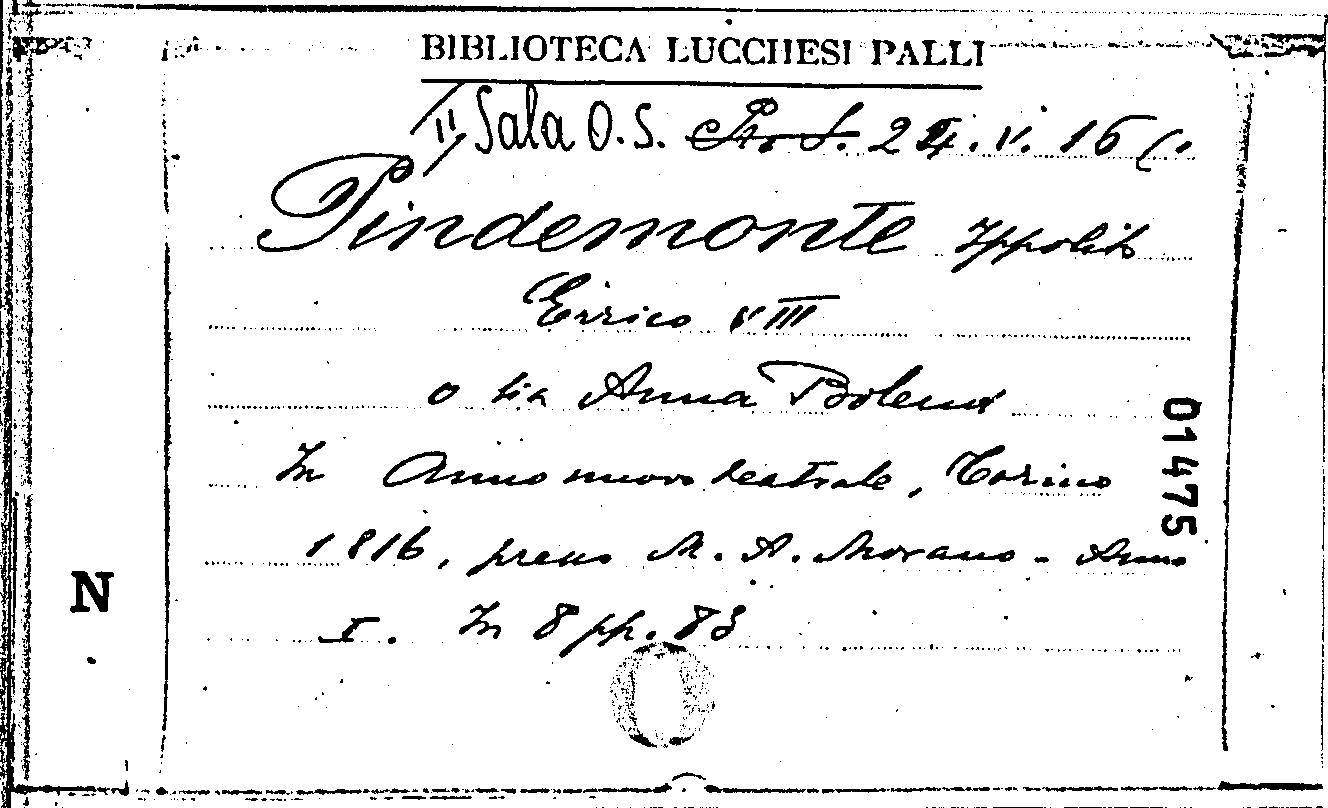 BIBLIOTECA LUCCHESI PALLI
II Sala O.S. 24. V. 16
Pindemonte Ippolito
Errico VIII
o sia Anna Bolena
In Anno nuovo teatrale, Torino
1816, presso M. A. Morano - Anno
I. In 8 pp. 83
01475
N